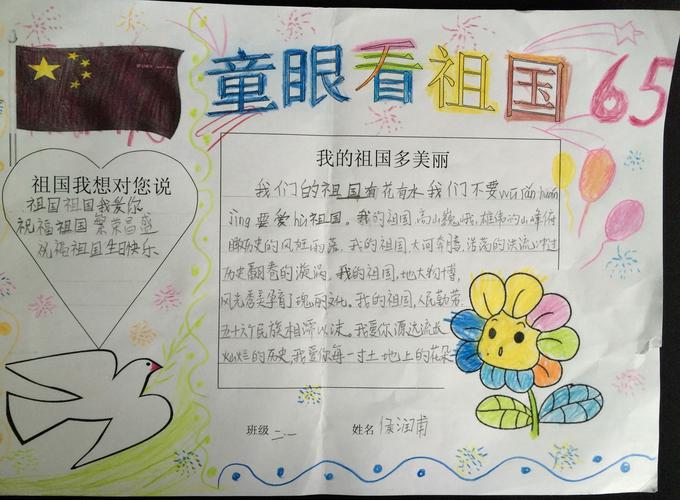 童眼看祖国 65
祖国我想对您说
祖国祖国我爱你
祝福祖国繁荣昌盛
祝福祖国生日快乐
我的祖国多美丽
我们的祖国有花有水我们不要wū rǎn huán
jìng 要爱hù祖国。我的祖国,高山巍峨,雄伟的山峰俯
瞰历史的风狂雨落,我的祖国,大河奔腾,浩荡的洪流冲过
历史翻卷的漩涡。我的祖国,地大物博,
风光秀美孕育了瑰丽的文化。我的祖国,人民勤劳,
五十六个民族相濡以沫。我爱你源远流长
灿烂的历史,我爱你每一寸土地上的花朵
班级 二一 姓名 侯润甫